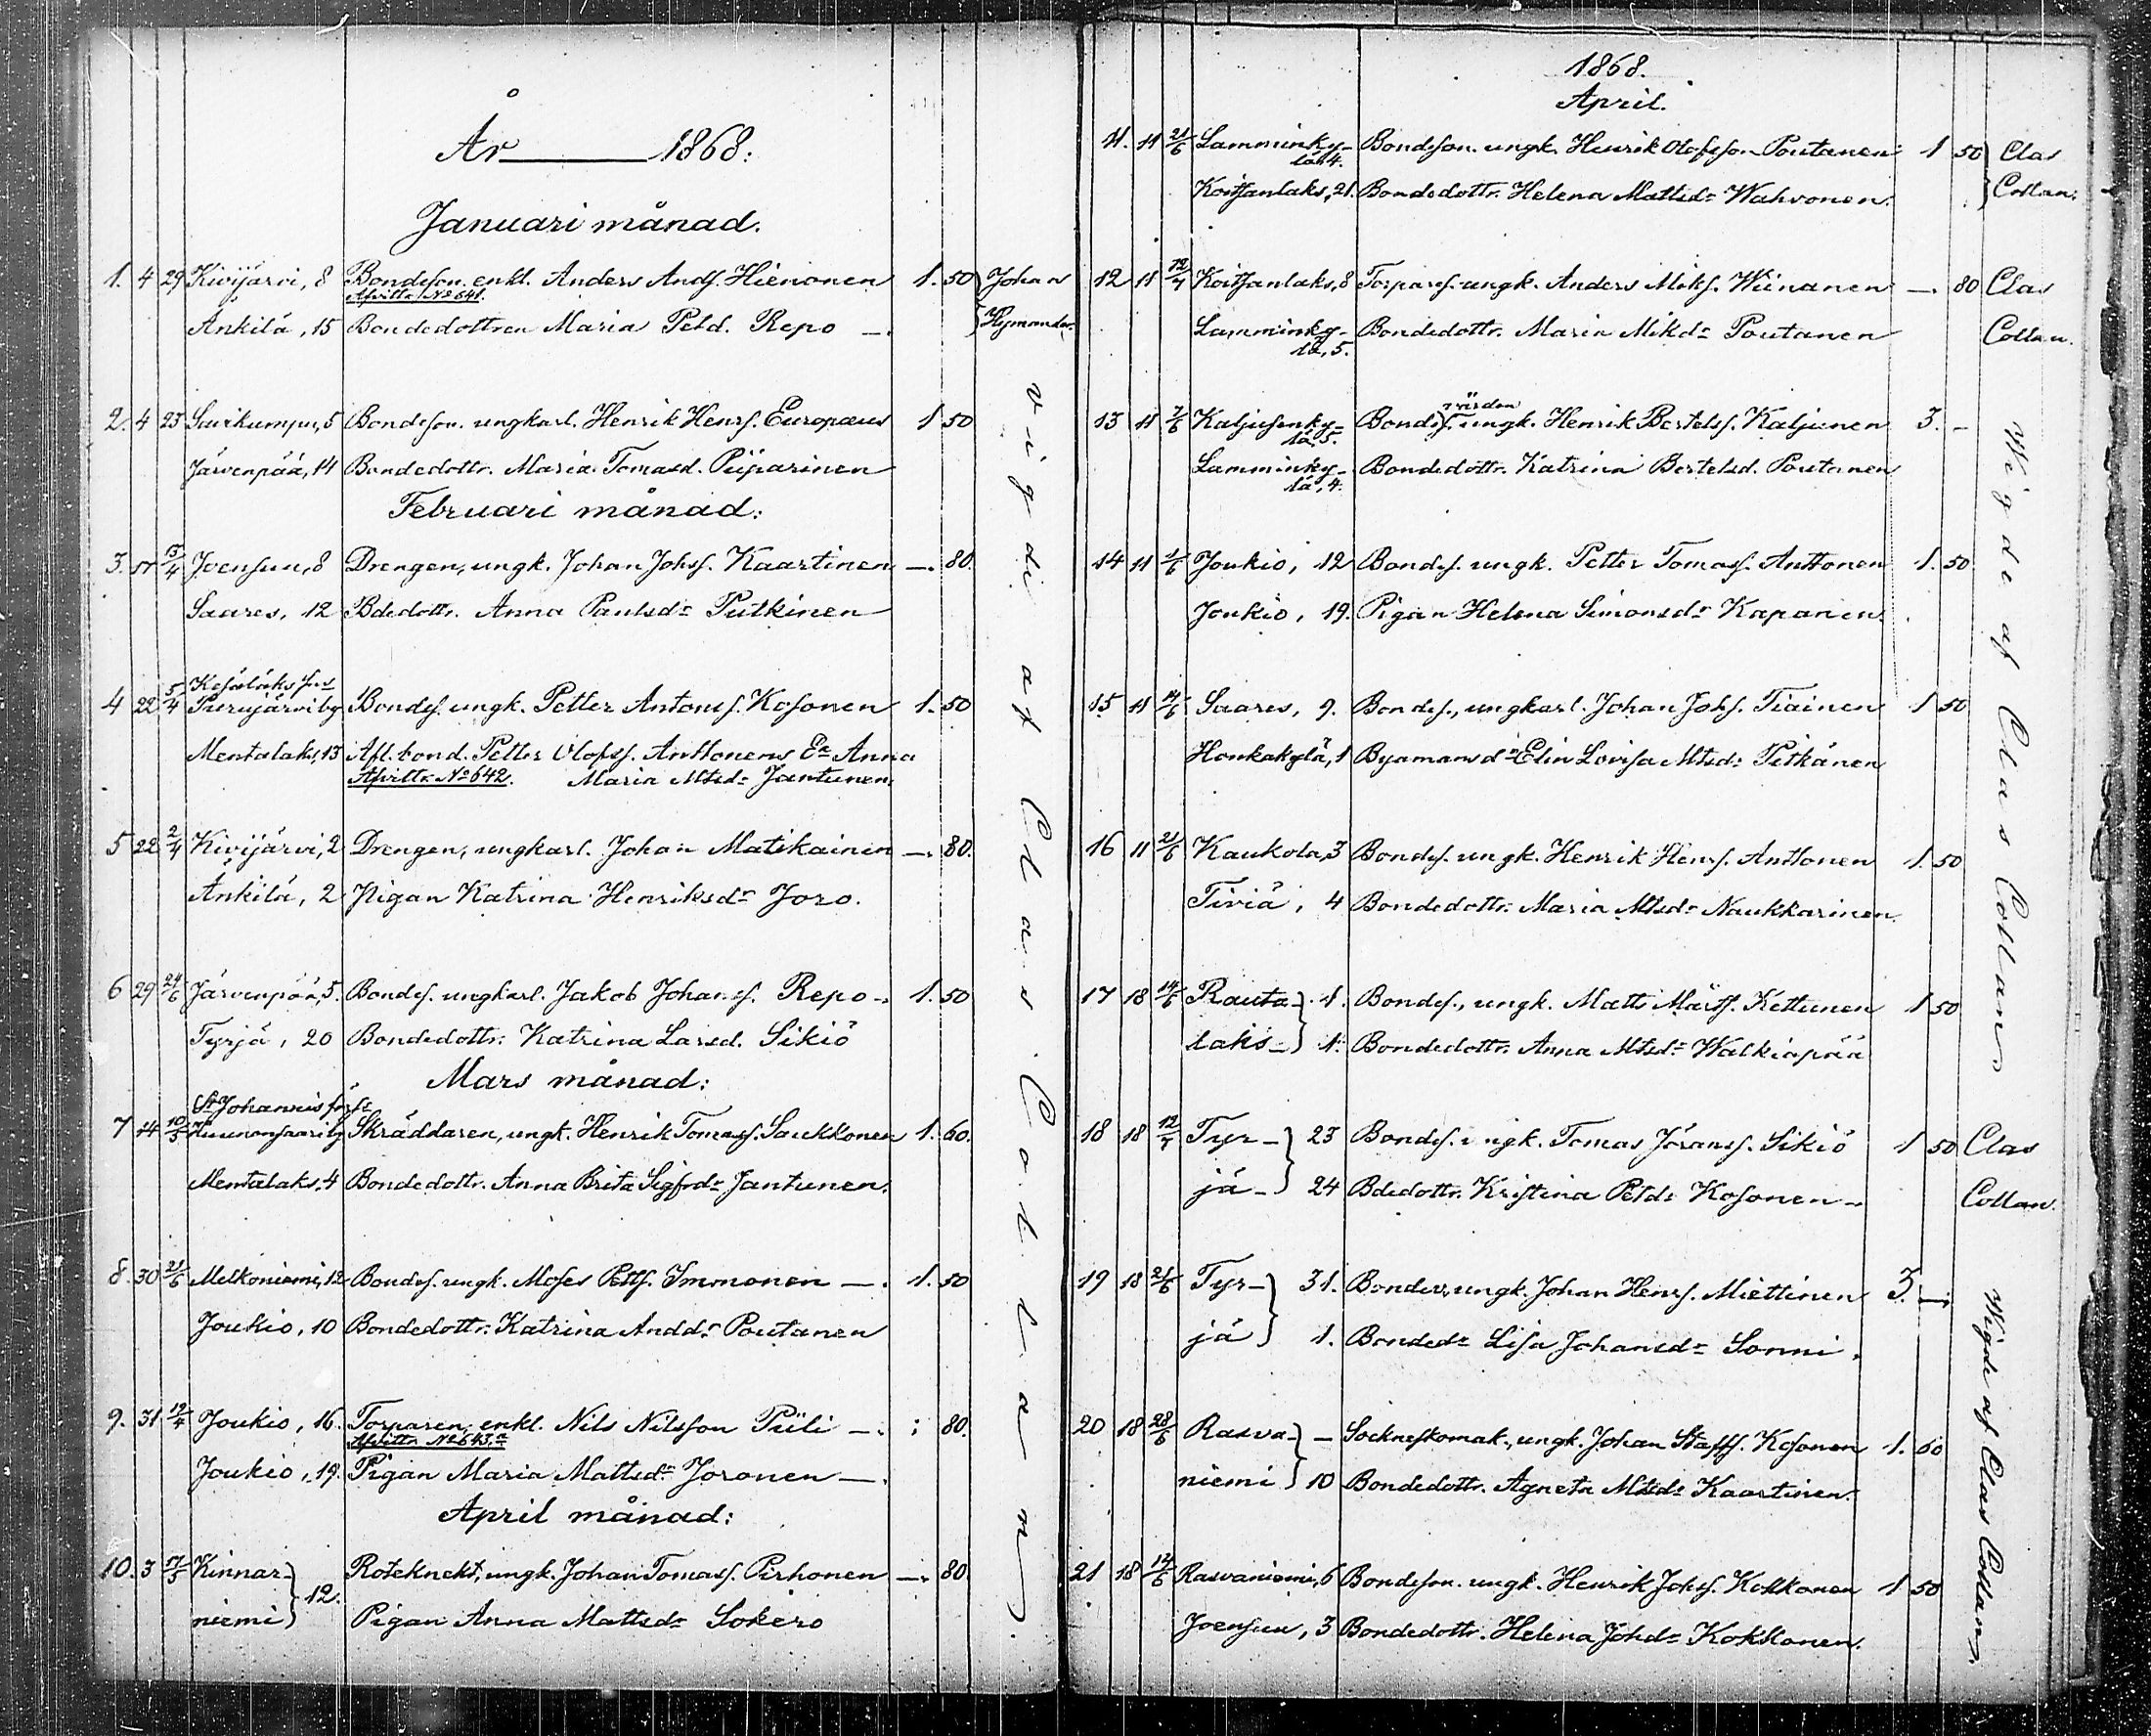 År 1868:
Januari månad.
1. 4 29 Kivijärvi, 8 Bondeson. enkl. Anders Ands. Hienonen 1. 50 Johan
Afvittr. No 641.
Änkilä, 15 Bondedottren Maria Petd. Repo —. Hymander.
2. 4 23 Savikumpu, 5 Bondeson. ungkarl. Henrik Henrs. Europæus 1 50
Järvenpää, 14 Bondedottr. Maria Tomasd. Piiparinen
Februari månad:
3. 5/4 Joensuu, 8 Drengen, ungk. Johan Johss. Kaartinen —. 80.
Saares, 12 Bdedottr. Anna Paulsdr Putkinen
Kesälaks
4 22 5/4 Purujärvi by Bondes. ungk. Petter Antons. Kosonen 1. 50
Mentalaks, 13 Afl. bond. Petter Olofss. Anttonens Ea Anna
Afvittr. No 642. Maria Mtsdr Jantunen.
5 22 2/4 Kivijärvi, 2 Drengen, ungkarl. Johan Matikainen —. 80.
Änkilä, 2 Pigan Katrina Henriksdr Joro.
6 29 24/6 Järvenpää, 5. Bondes. ungkarl. Jakob Johanss. Repo 1. 50
Tyrjä, 20 Bondedottr. Katrina Larsd. Sikiö
Mars månad:
St Johannis förs:
7 14 10/5 by Skräddaren, ungk. Henrik Tomass. Saukkonen 1. 60.
Mentalaks, 4 Bondedottr. Anna Brita Sigfrdr Jantunen.
8. 30 21/6 Melkoniemi, 12 Bondes. ungk. Moses Petts. Immonen —. 1. 50
Joukio, 10 Bondedottr. Katrina Anddr Poutanen
9. 31 19/4 Joukio, 16. Torparen, enkl. Nils Nilsson Piili —. 80.
Afvittr. No 643.
Joukio, 19. Pigan Maria Mattsdr Joronen —.
April månad:
10. 3 17/5 Kinnar- Roteknekt, ungk. Johan Tomass. Pirhonen —. 80.
12.
niemi Pigan Anna Mattsdr Sokero
vigdi af Clas Collan.
1868.
April.
11. 11 21/6 Lamminky- Bondeson. ungk. Henrik Olofsson Poutanen 1 50 Clas
lä, 4.
Koitsanlaks, 21. Bondedottr. Helena Mattsdr Wahvonen. Collan.
12 11 12/4 Koitsanlaks, 8 Torpares. ungk. Anders Miks. Wiinanen —. 80 Clas
Lamminky- Bondedottr. Maria Mikdr Poutanen Collan.
lä, 5.
värden
13 11 7/6 Kaljusenky- Bondes. ungk. Henrik Bertelss. Kaljunen 3. -
lä, 5.
Lamminky- Bondedottr. Katrina Bertelsd. Poutanen
lä, 4.
14 11 1/6 Joukio, 12 Bondes. ungk. Petter Tomass. Anttonen 1. 50
Joukio, 19. Pigan Helena Simonsdr Kapanen.
15 11 14/6 Saares, 9. Bondes., ungkarl. Johan Johs. Tiainen 1 50
Honkakylä, 1 Byamansdr Elin Lovisa Mtsdr Pitkänen
16 11 21/6 Kaukola, 3 Bondes. ungk. Henrik Henrs. Anttonen 1. 50
Tiviä, 4 Bondedottr. Maria Mtsdr Naukkarinen.
17 18 14/6 Rauta- 1. Bondes., ungk. Matts Mårts. Kettunen 1 50
laks- 1. Bondedottr. Anna Mtsdr Walkiapää
18 18 12/7 Tyr- 23 Bondes. ungk. Tomas Jöranss. Sikiö 1 50 Clas
jä- 24 Bdedottr. Kristina Petdr Kosonen — Collan.
19 18 21/6 Tyr- 31. Bonden, ungk. Johan Henrs. Miettinen 3. —.
jä 1. Bondedr Lisa Johansdr Sonni.
20 18 28/6 Rasva- — Socknskomak., ungk. Johan Staffs. Kosonen 1. 60
niemi 10 Bondedottr. Agneta Mtsdr Kaartinen.
21 18 14/6 Rasvaniemi, 6 Bondeson. ungk. Henrik Johss. Kokkonen 1 50
Joensuu, 3 Bondedottr. Helena Johdr Kokkonen.
Wigde af Clas Collan
Wigde af Clas Collan.